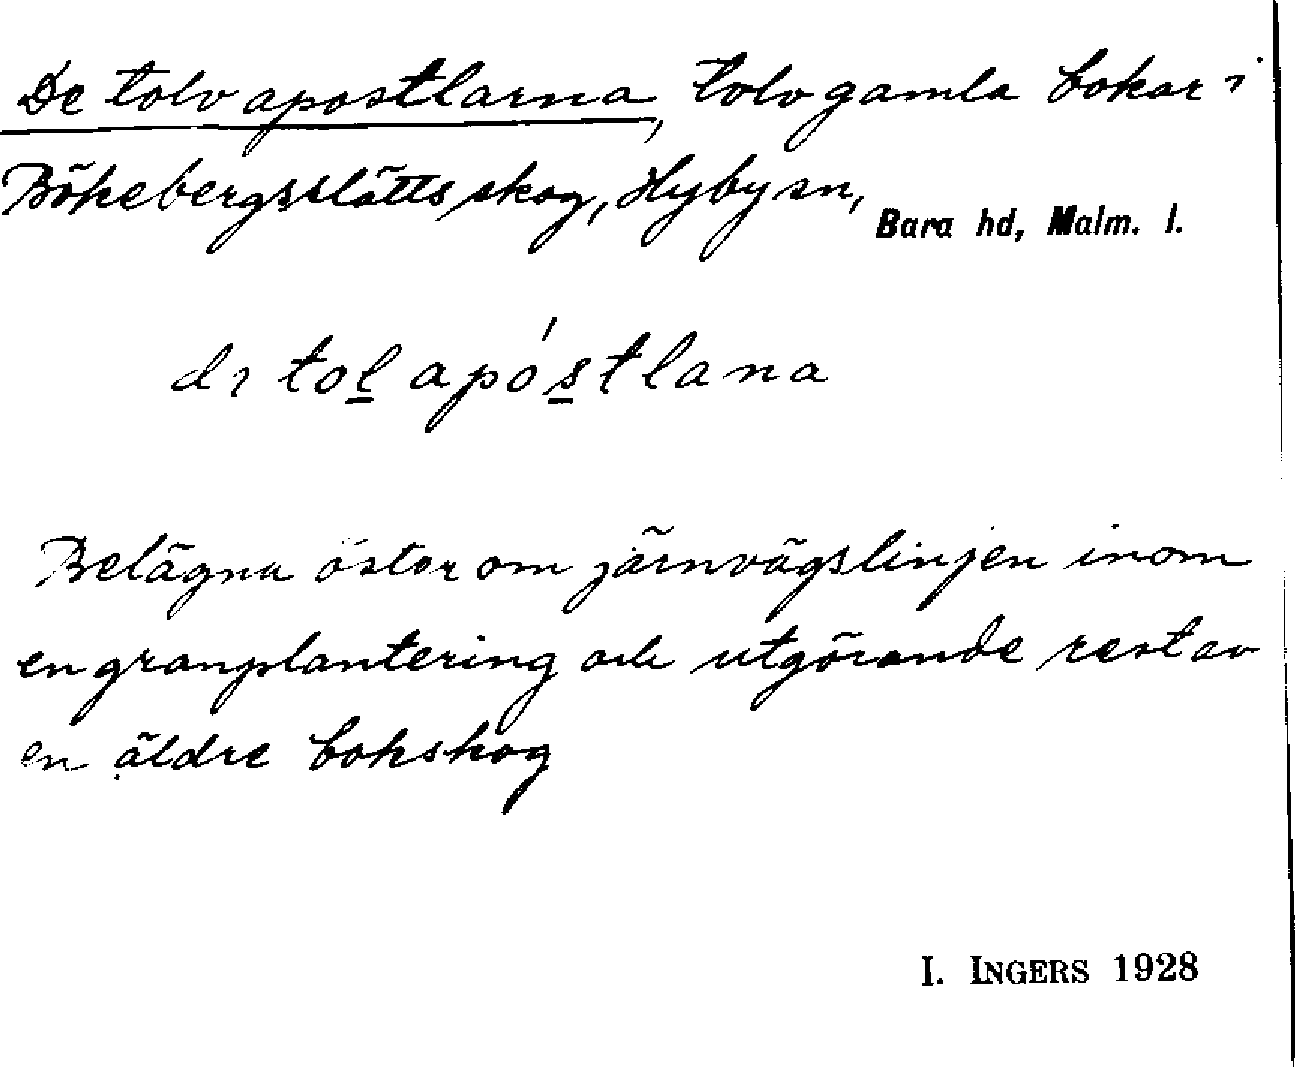 De tolv apostlarna, tolv gamla bokar i
Bökebergsslätts skog, Hyby sn, Bara hd, Malm. l.
dı tol apóstlana
Belägna öster om järnvägslinjen inom
en granplantering och utgörande rest av
en äldre bokskog
I. INGERS 1928